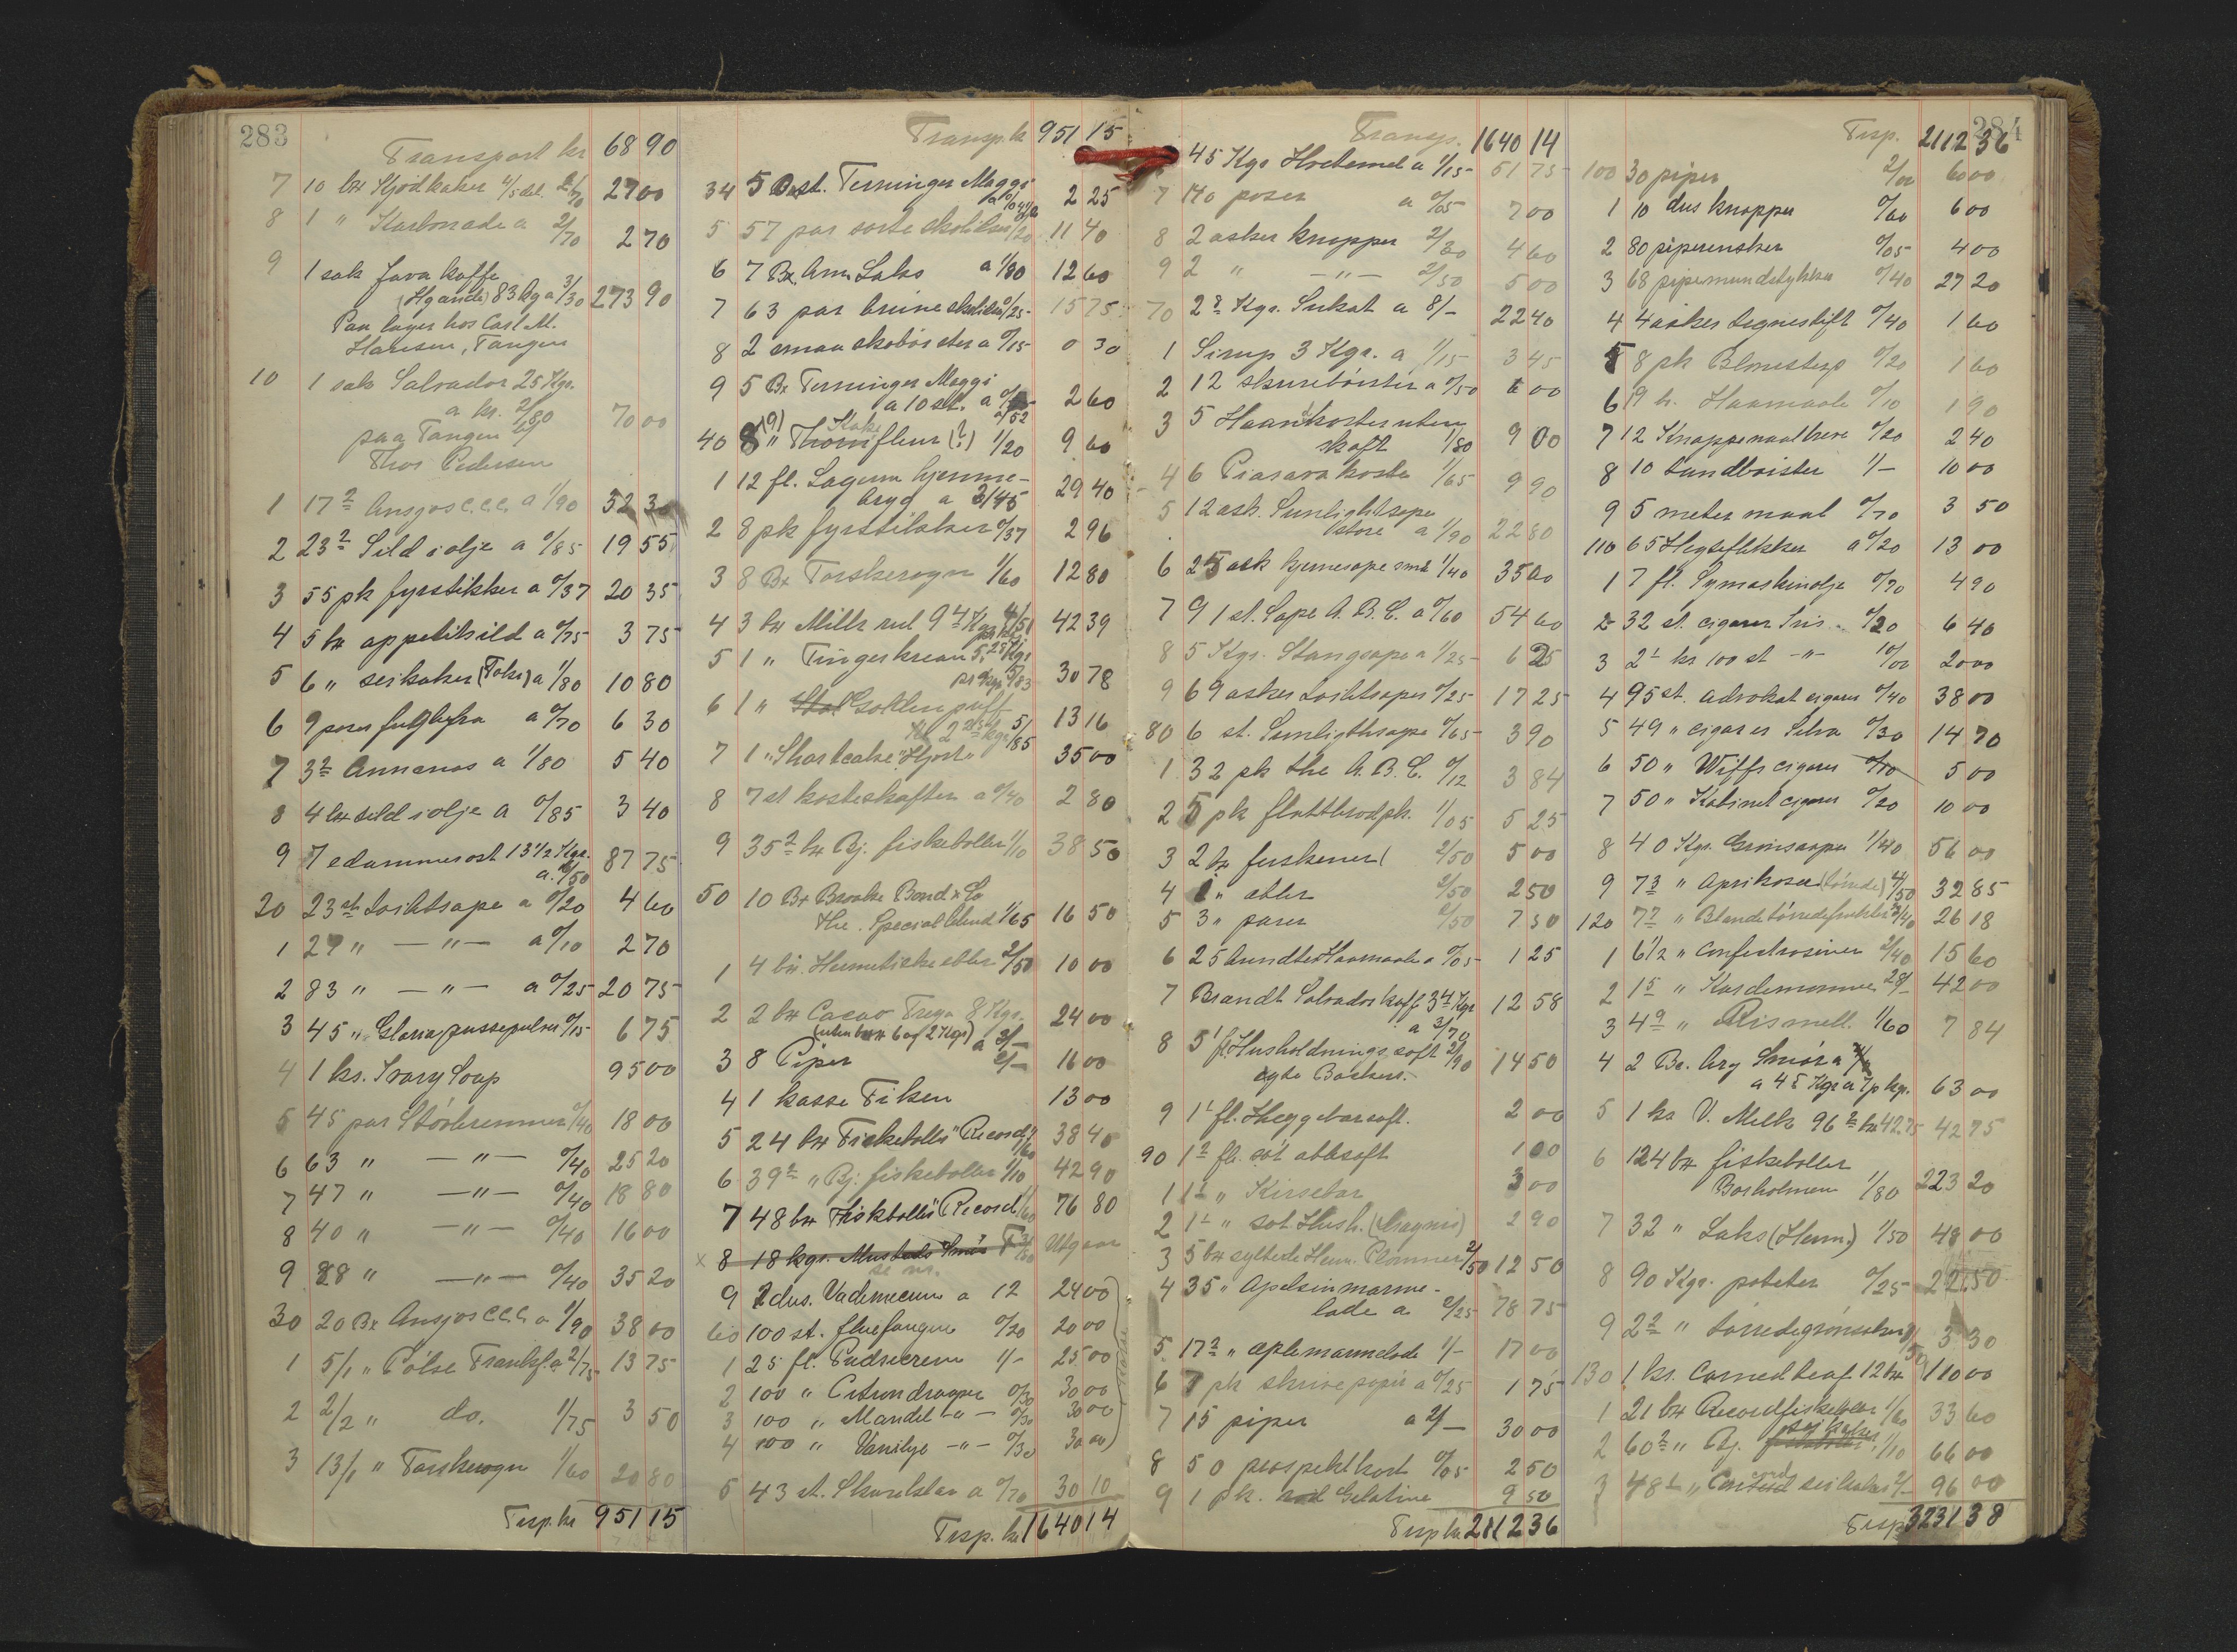 283
Transport kr 68 90
7 10 bx Kjödkaker 1/1 stl. 2/70 27 00
8 1 " Karbonade a 2/70 2 70
9 1 sak Java kaffe
83 kg a 3/30 273 90
Paa lager hos Carl M.
Hansen, Tangen
10 1 sak Salvador 25 Kgr.
a kr. 2/80 70 00
paa Tangen
Thor Pedersen
1 17 2 Ansjos C.C.C. a 1/90 32 30
2 23 2 Sild i olje a 0/85 19 55
3 55 pk fyrstikker a 0/37 20 35
4 5 bx appetitsild a 0/75 3 75
5 6 " seikaker a 1/80 10 80
6 9 poser fuglefrø a 0/70 6 30
7 3 2 Annanas a 1/80 5 40
8 4 bx sild i olje a 0/85 3 40
9 7 edammerost 13 1/2 Kgr.
a 6/50 87 75
20 23 st toiletsape a 0/20 4 60
1 27 " — " — a 0/10 2 70
2 83 " — " — a 0/25 20 75
3 45 " Gloria pussepulver 0/15 6 75
4 1 ks. Ivory Soap 95 00
5 45 par Störbremmer 0/40 18 00
6 63 " — " — 0/40 25 20
7 47 " — " — 0/40 18 80
8 40 " — " — 0/40 16 00
9 88 " — " — 0/40 35 20
30 20 Bx Ansjos C.C.C. a 1/90 38 00
1 5/1 " Pölse Frankf. a 2/75 13 75
2 2/2 " do. 1/75 3 50
3 13/1 " Torskerogn 1/60 20 80
Trsp. kr 951 15
Transp. kr 951 15
34 5 st. Terninger Maggi
2 25
5 57 par sorte skolisser 0/20 11 40
6 7 Bx. Am. Laks a 1/80 12 60
7 63 par brune skolisser 0/25 15 75
8 2 smaa skobörster a 0/15 0 30
9 5 Bx Terninger Maggi
a 10 st. a 0/52 2 60
40 8 " fleur (?) 1/20 9 60
1 12 fl. Lagerm hjemme-
bryg a 2/45 29 40
2 8 pk fyrstikker 0/37 2 96
3 8 Bx Torskerogn 1/60 12 80
4 3 bx Millk 42 39
5 1 " 30 78
6 1 " Golden puff
5/85 13 16
7 1 " Shortcake "Hjort" 35 00
8 7 st kosteskafter a 0/40 2 80
9 35 2 bx Bj. fiskeboller 1/10 38 50
50 10 Bx Brooke Bond & Co
the. Special blend 1/65 16 50
1 4 bx. Hermetiske ebler 2/50 10 00
2 2 bx Cacao Freya 8 Kgr.
a 3/— 24 00
3 8 Piper 2/— 16 00
4 1 kasse Fiken 13 00
5 24 bx Fiskeboller "Record" 1/60 38 40
6 39 2 " Bj. fiskeboller 1/10 42 90
7 48 bx Fiskboller "Record" 1/60 76 80
x 8 18 kgr. Mustads Smör Utgaar
se nr.
9 2 dus. Vademecum a 12 24 00
60 100 st. fluefangere 0/20 20 00
1 25 fl. Pudrecrem 1/— 25 00
2 100 " Citrondraaper 0/30 30 00
3 100 " Mandel — " — 0/30 30 00
4 100 " Vanilje — " — 0/30 30 00
5 43 st. Skureklar a 0/70 30 10
Trsp. kr 1640 14
Transp. 1640 14
45 Kgr Hvetemel a 1/15 51 75
7 140 poser a 0/05 7 00
8 2 asker knapper 2/30 4 60
9 2 " — " — 2/50 5 00
70 2 8 Kgr. Sukat a 8/— 22 40
1 Sirup 3 Kgr. a 1/15 3 45
2 12 skurebörster a 0/50 6 00
3 5 Haandkoster uten
skaft 1/80 9 00
4 6 Piasavakoste 1/65 9 90
5 12 ask. Sunlightsape
store a 1/90 22 80
6 25 ask kjernesape små 1/40 35 00
7 91 st. Sape A.B.C. a 0/60 54 60
8 5 Kgr. Stangsape a 1/25 6 25
9 69 asker toiletsaper 0/25 17 25
80 6 st. Sunligthsape 0/65 3 90
1 32 pk the A.B.C. 0/12 3 84
2 5 pk flattbröd pk. 1/05 5 25
3 2 bx ferskener 2/50 5 00
4 1 " ebler 2/50 2 50
5 3 " pærer 2/50 7 50
6 25 bundter Haarnaale a 0/05 1 25
7 Brandt Salvador kaff 3 4 Kgr
a 3/70 12 58
8 5 fl Husholdnings saft 2/90 14 50
egte Backers.
9 1 1 fl. Heggebærsaft. 2 00
90 1 2 fl. söt eblesaft 1 00
1 1 1 " Kirsebær 3 00
2 1 1 " söt Hush. (Magnus) 2 90
3 5 bx syltede Herm. Plommer 2/50 12 50
4 35 " Apelsinmarme-
lade a 2/25 78 75
5 17 2 " eplemarmelade 1/— 17 00
6 7 pk skrivepapir a 0/25 1 75
7 15 piper a 2/— 30 00
8 50 prospektkort 0/05 2 50
9 1 pk. Gelatine 9 50
Trsp kr 2112 36
284
Trsp. 2112 36
100 30 piper 2/00 60 00
1 10 dus knapper 0/60 6 00
2 80 piperensker 0/05 4 00
3 68 pipemundstykker 0/40 27 20
4 4 asker tegnestift 0/40 1 60
5 8 pk Blomsterp 0/20 1 60
6 19 b. Haarnaale 0/10 1 90
7 12 Knappenaalbreve 0/20 2 40
8 10 tandbörster 1/— 10 00
9 5 meter maal 0/70 3 50
110 65 Hegseflikker a 0/20 13 00
1 7 fl. Symaskinolje 0/70 4 90
2 32 st. cigarer Iris 0/20 6 40
3 2 1 ks 100 st — " — 10/00 20 00
4 95 st. advokat cigarer 0/40 38 00
5 49 " cigarer Selva 0/30 14 70
6 50 " Wiffs cigarer 0/10 5 00
7 50 " Kabinet cigarer 0/20 10 00
8 40 Kgr. Grönsaape 1/40 56 00
9 7 3 " Aprikoser (törrede) 4/50 32 85
120 7 7 " Blande törredefrukter 3/40 26 18
1 6 1/2 " Confectrosiner 2/40 15 60
2 1 5 " Kardemomme 28/— 42 00
3 4 9 " Rismell. 1/60 7 84
4 2 Bx. Arg Smör a
a 45 Kgr a 7 p kg. 63 00
5 1 ks V. Melk 96 2 bx 42.75 42 75
6 124 bx fiskeboller
Borholmen 1/80 223 20
7 32 " Laks (Herm.) 1/50 48 00
8 90 Kgr. poteter 0/25 22 50
9 2 2 " törredegrönsaker 1/50 3 30
130 1 ks. Corned beaf 12 bx 110 00
1 21 bx Recordfiskeboller 1/60 33 60
2 60 2 " Bj. seikaker 1/10 66 00
3 48 1 " seikaker 2/— 96 00
Trsp 3231 38